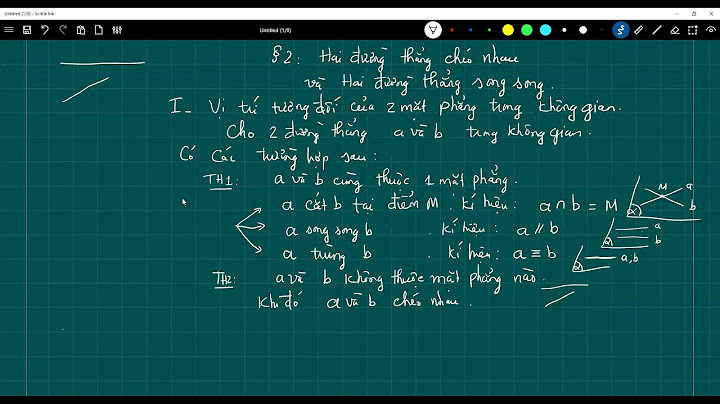 Untitled (1/0) - ScribleInk
Untitled (1/0)
§2: Hai đường thẳng chéo nhau
và Hai đường thẳng song song.
I_ Vị trí tương đối của 2 mặt phẳng trong không gian.
Cho 2 đường thẳng a và b trong không gian.
Có các trường hợp sau:
TH1: a và b cùng thuộc 1 mặt phẳng.
a cắt b tại điểm M. kí hiệu: a ∩ b = M
M a
b
α
a song song b . kí hiệu: a // b
a
b
α
a trùng b . kí hiệu: a ≡ b
a,b
α
TH2: a và b không thuộc mặt phẳng nào.
Khi đó a và b chéo nhau.